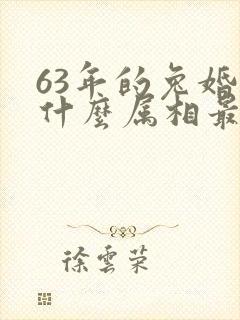 63年的兔婚
什麼属相最
徐雲荣